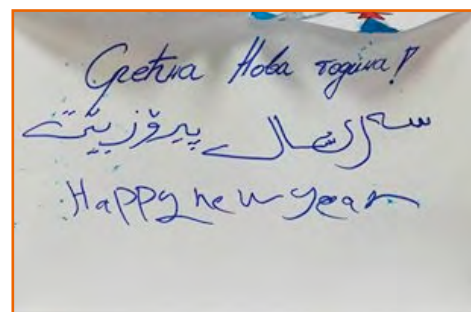 Срећна Нова година!
سەری ساڵ پیرۆزبێت
Happy new year